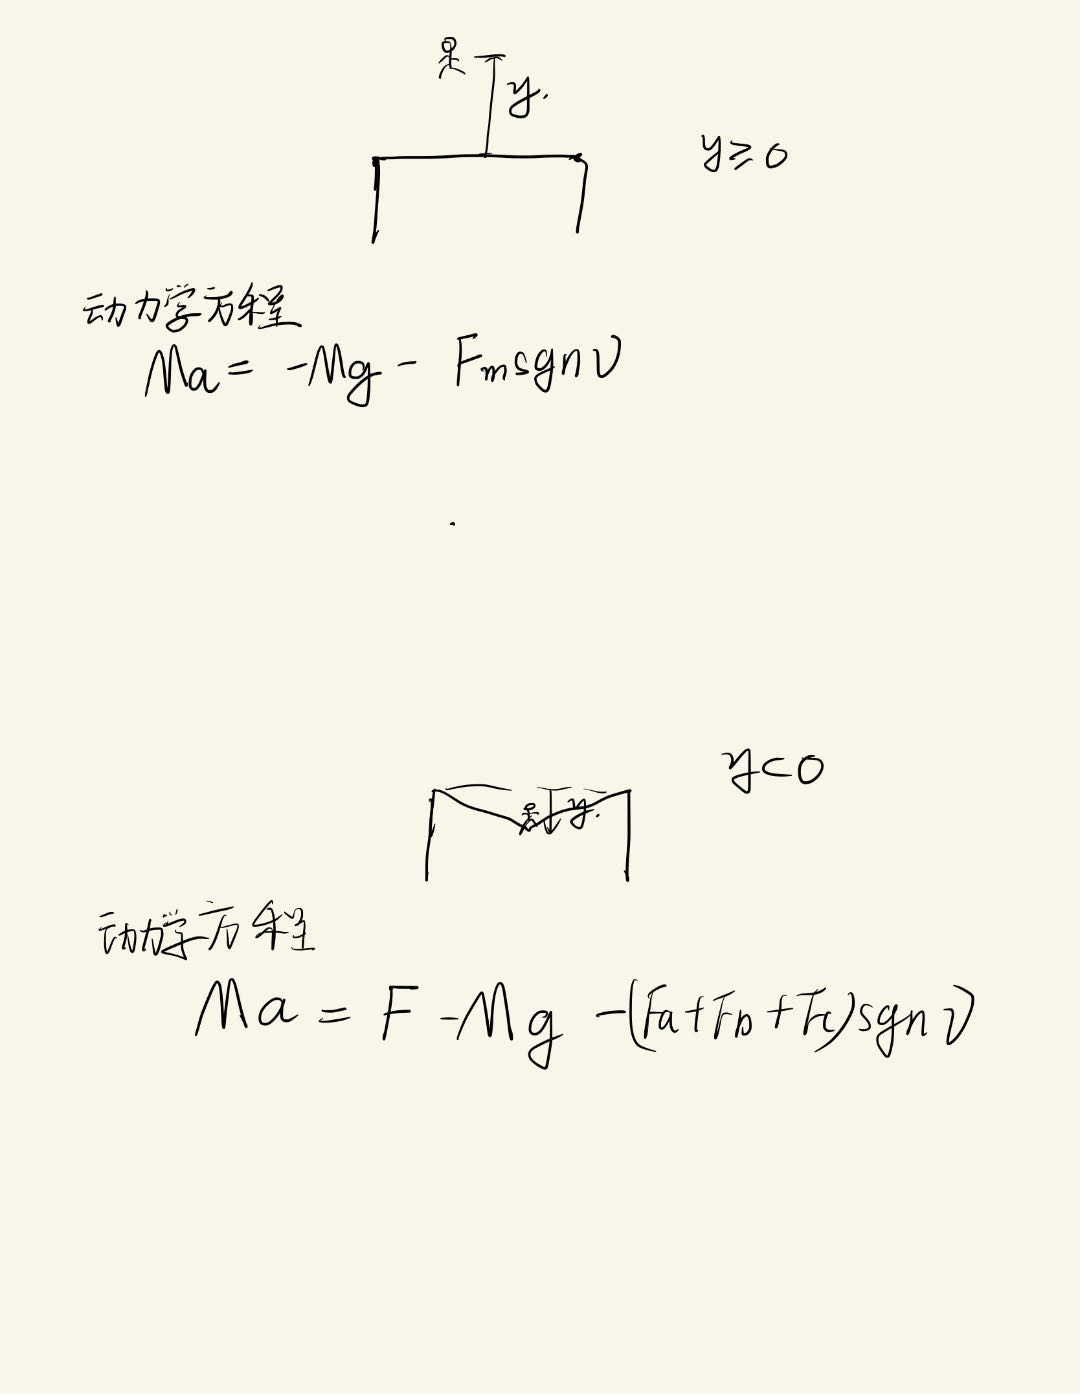 y.
y≥0
动力学方程
Ma= -Mg - Fmsgnv
y<0
y.
动力学方程
Ma = F -Mg -(Fa+Fb+Fc)sgnv